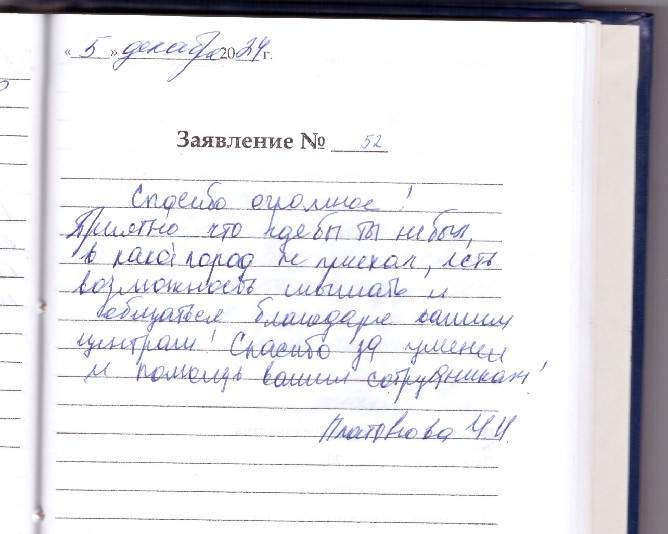 «5» декабря 2024г.
Заявление № 52
Спасибо огромное!
Приятно что где бы ты не был,
в какой город не приехал, есть
возможность слышать и
общаться благодаря вашим
центрам! Спасибо за умение
и помощь вашим сотрудникам!